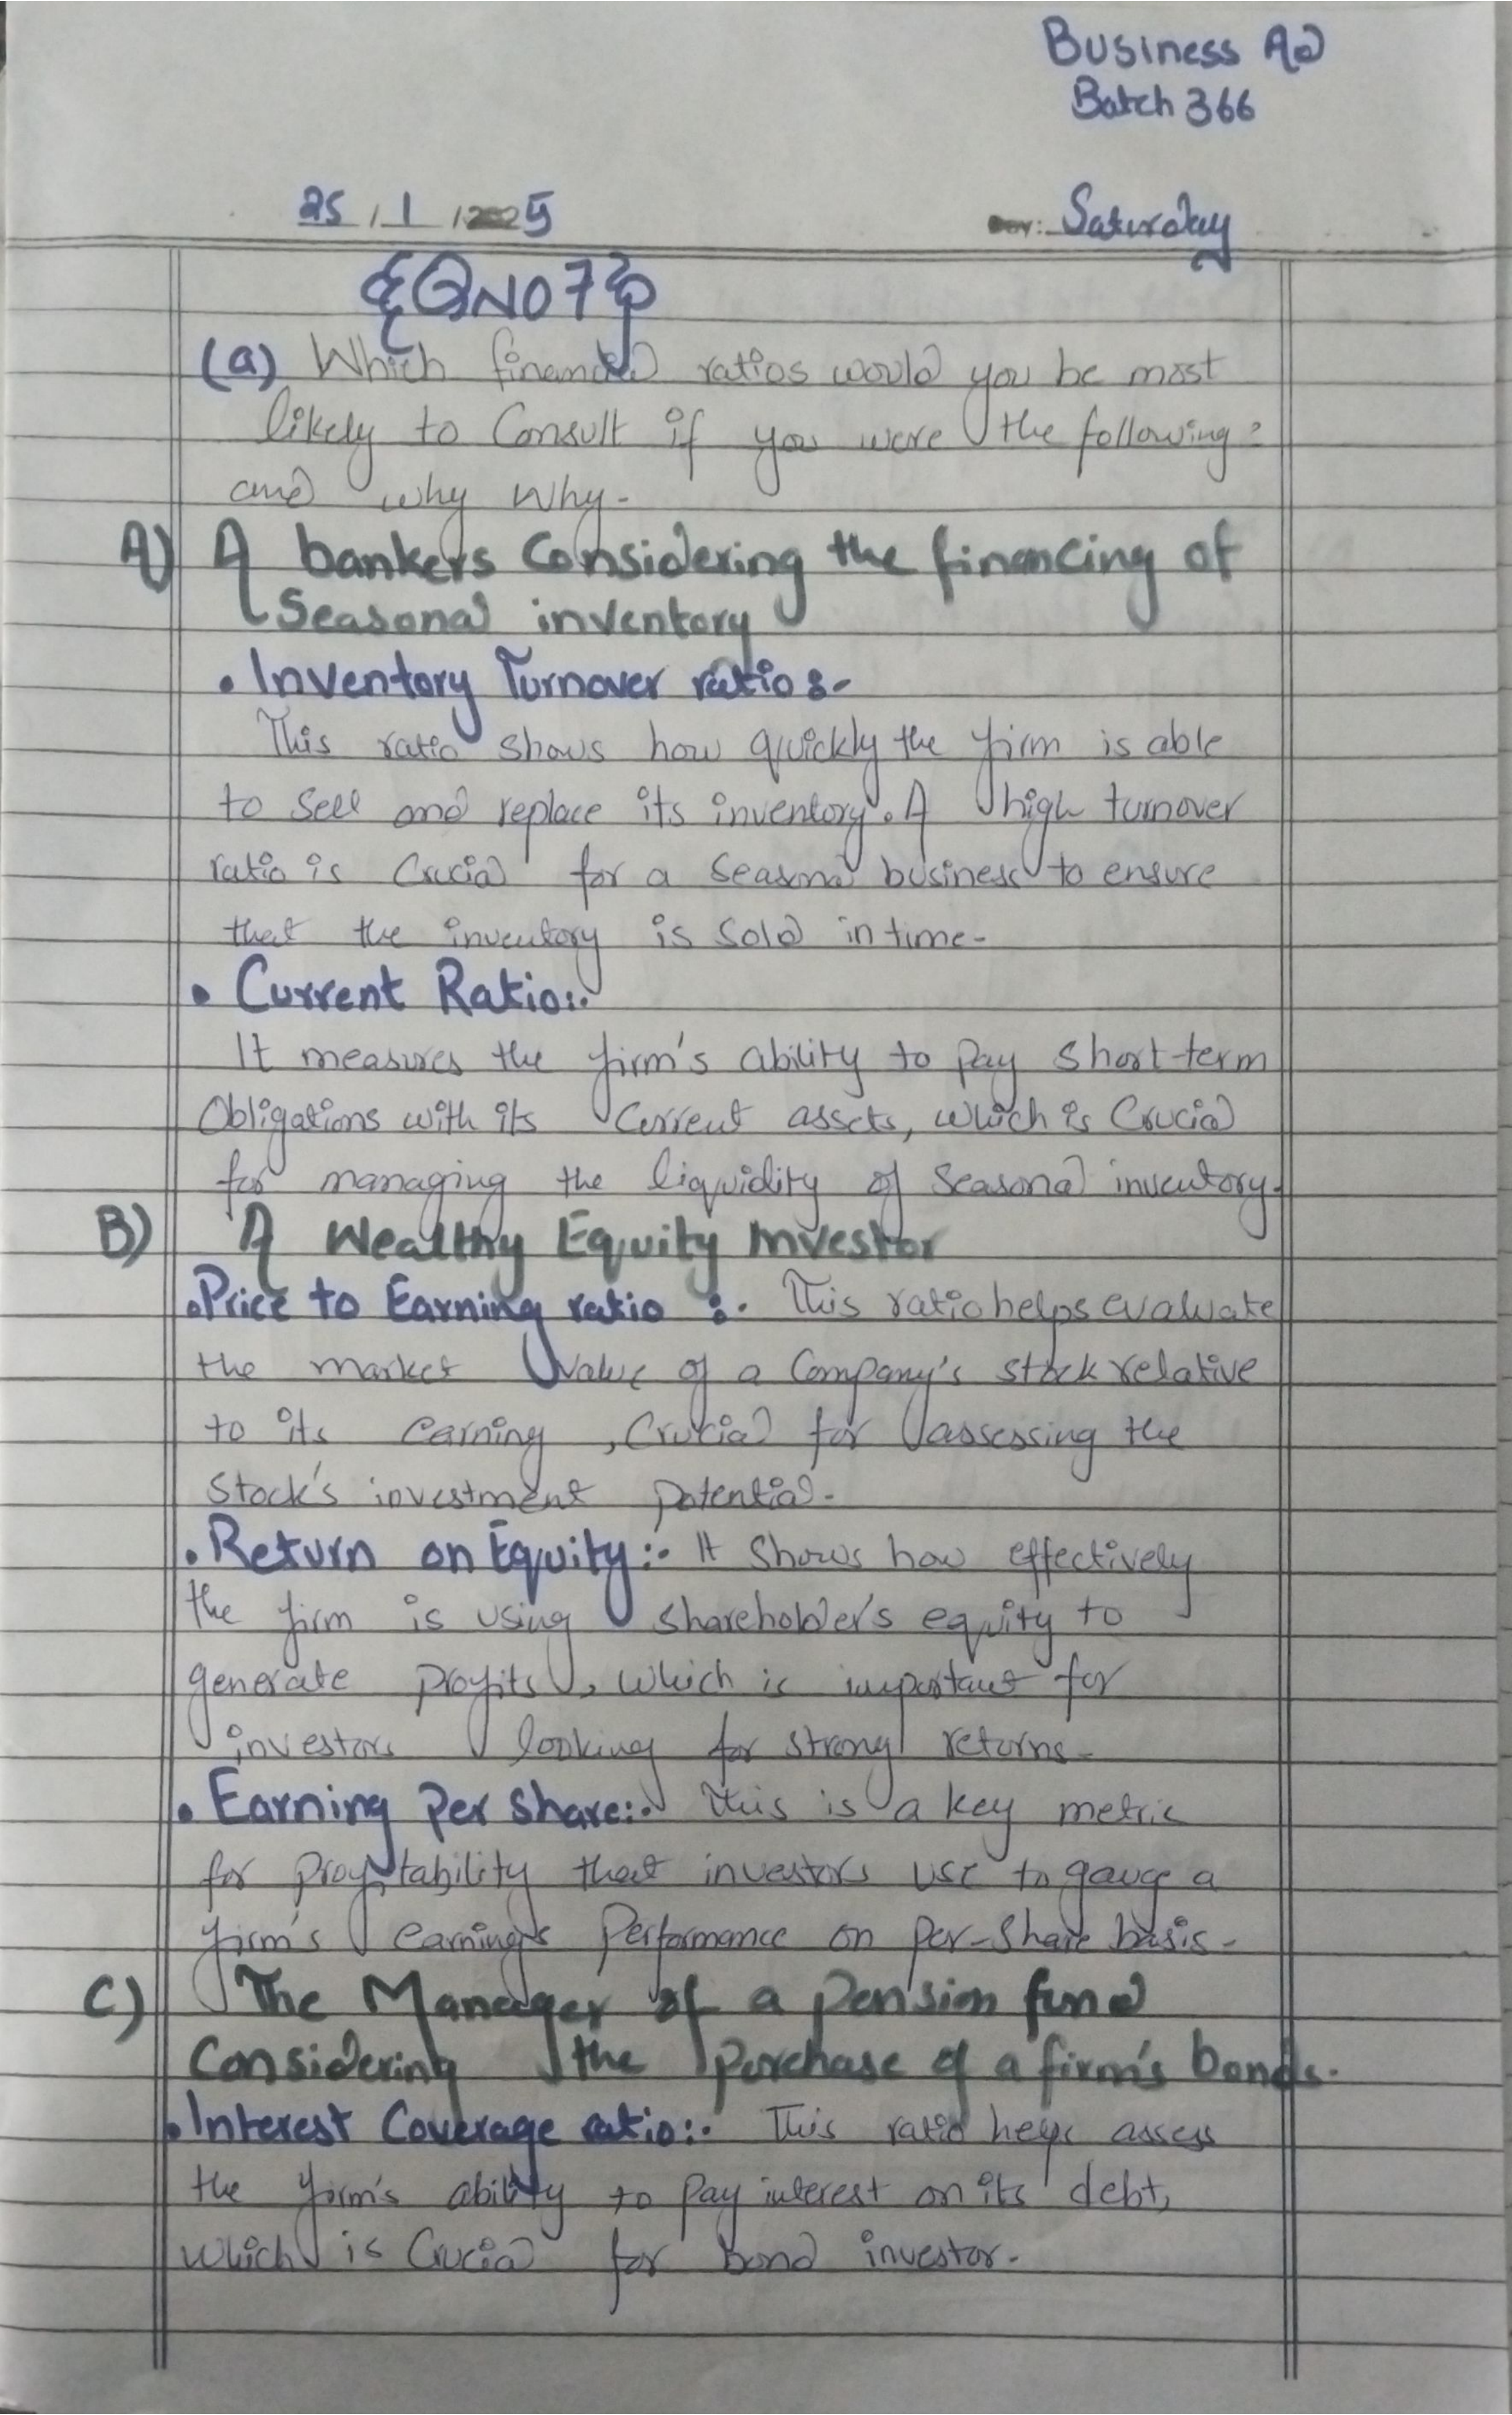 Business Ad
Batch 366
25 / 1 / 2025
DAY: Saturday
QNO7
(a) Which financial ratios would you be most
likely to Consult if you were the following?
and why why-
A) A bankers Considering the financing of
Seasonal inventory
• Inventory Turnover ratio:-
This ratio shows how quickly the firm is able
to Sell and replace its inventory. A high turnover
ratio is Crucial for a Seasonal business to ensure
that the inventory is Sold in time-
• Current Ratio:.
It measures the firm's ability to pay Short-term
Obligations with its Current assets, which is Crucial
for managing the liquidity of Seasonal inventory.
B) A Wealthy Equity Investor
•Price to Earning ratio :. This ratio helps evaluate
the market value of a Company's stock relative
to its earning, Crucial for assessing the
Stock's investment potential-
•Return on Equity:- It Shows how effectively
the firm is using shareholder's equity to
generate profits, which is important for
investors looking for strong returns-
• Earning Per Share:. This is a key metric
for profitability that investors use to gauge a
firm's earning's Performance on Per-Share basis-
C) The Manager of a Pension fund
Considering the purchase of a firm's bonds.
•Interest Coverage ratio:. This ratio assess
the firm's ability to pay interest on its debt,
which is Crucial for bond investor.